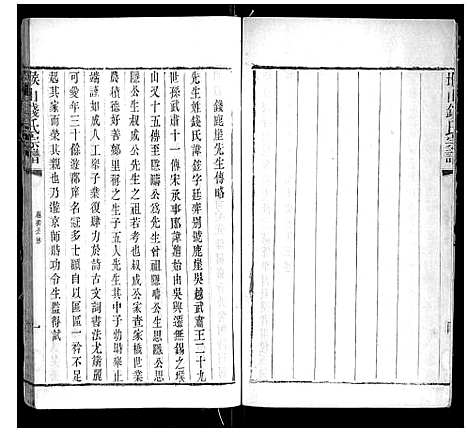 堠山錢氏宗譜
錢鹿崖先生傳略
先生姓錢氏諱銓字廷弼別號鹿崖吳越武肅王二十九
世孫武肅十一傳宋承事郎諱進始由吳興遷無錫之堠
山又十五傳至隱疇公爲先生曾祖隱疇公生思隱公思
隱公生叔成公先生之祖若考也叔成公家查家橋世業
農積德好善鄉里稱之生子五人先生其中子幼聰睾止
端謹如成人工舉子業復肆力於詩古文詞書法尤錆麗
可愛年三十餘遊郡庠名冠多士顧自以區區一衿不足
起其家而榮其親也乃遊京師時功令生監得試
堠山錢氏宗譜
一